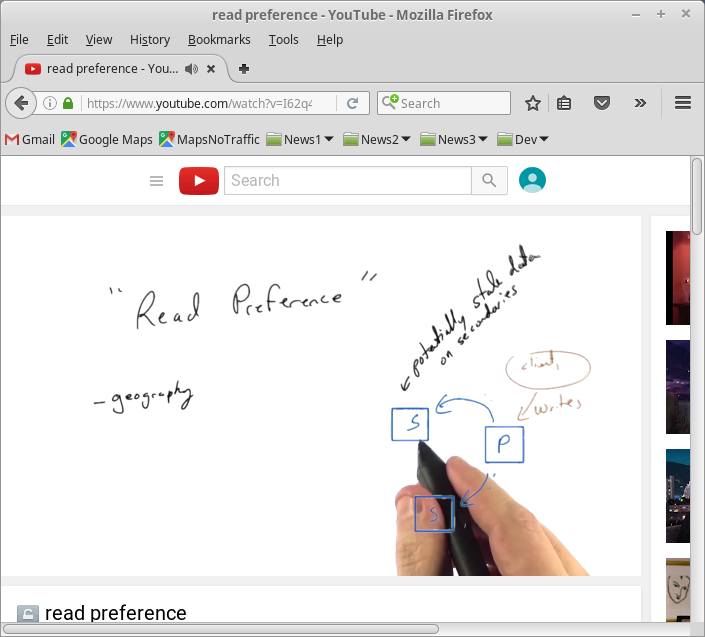 read preference - YouTube - Mozilla Firefox
File Edit View History Bookmarks Tools Help
read preference - You...
https://www.youtube.com/watch?v=I62q4
Search
Gmail Google Maps MapsNoTraffic News1 News2 News3 Dev
Search
"Read Preference"
potentially stale data
on secondaries
- geography
client
writes
S
P
S
read preference